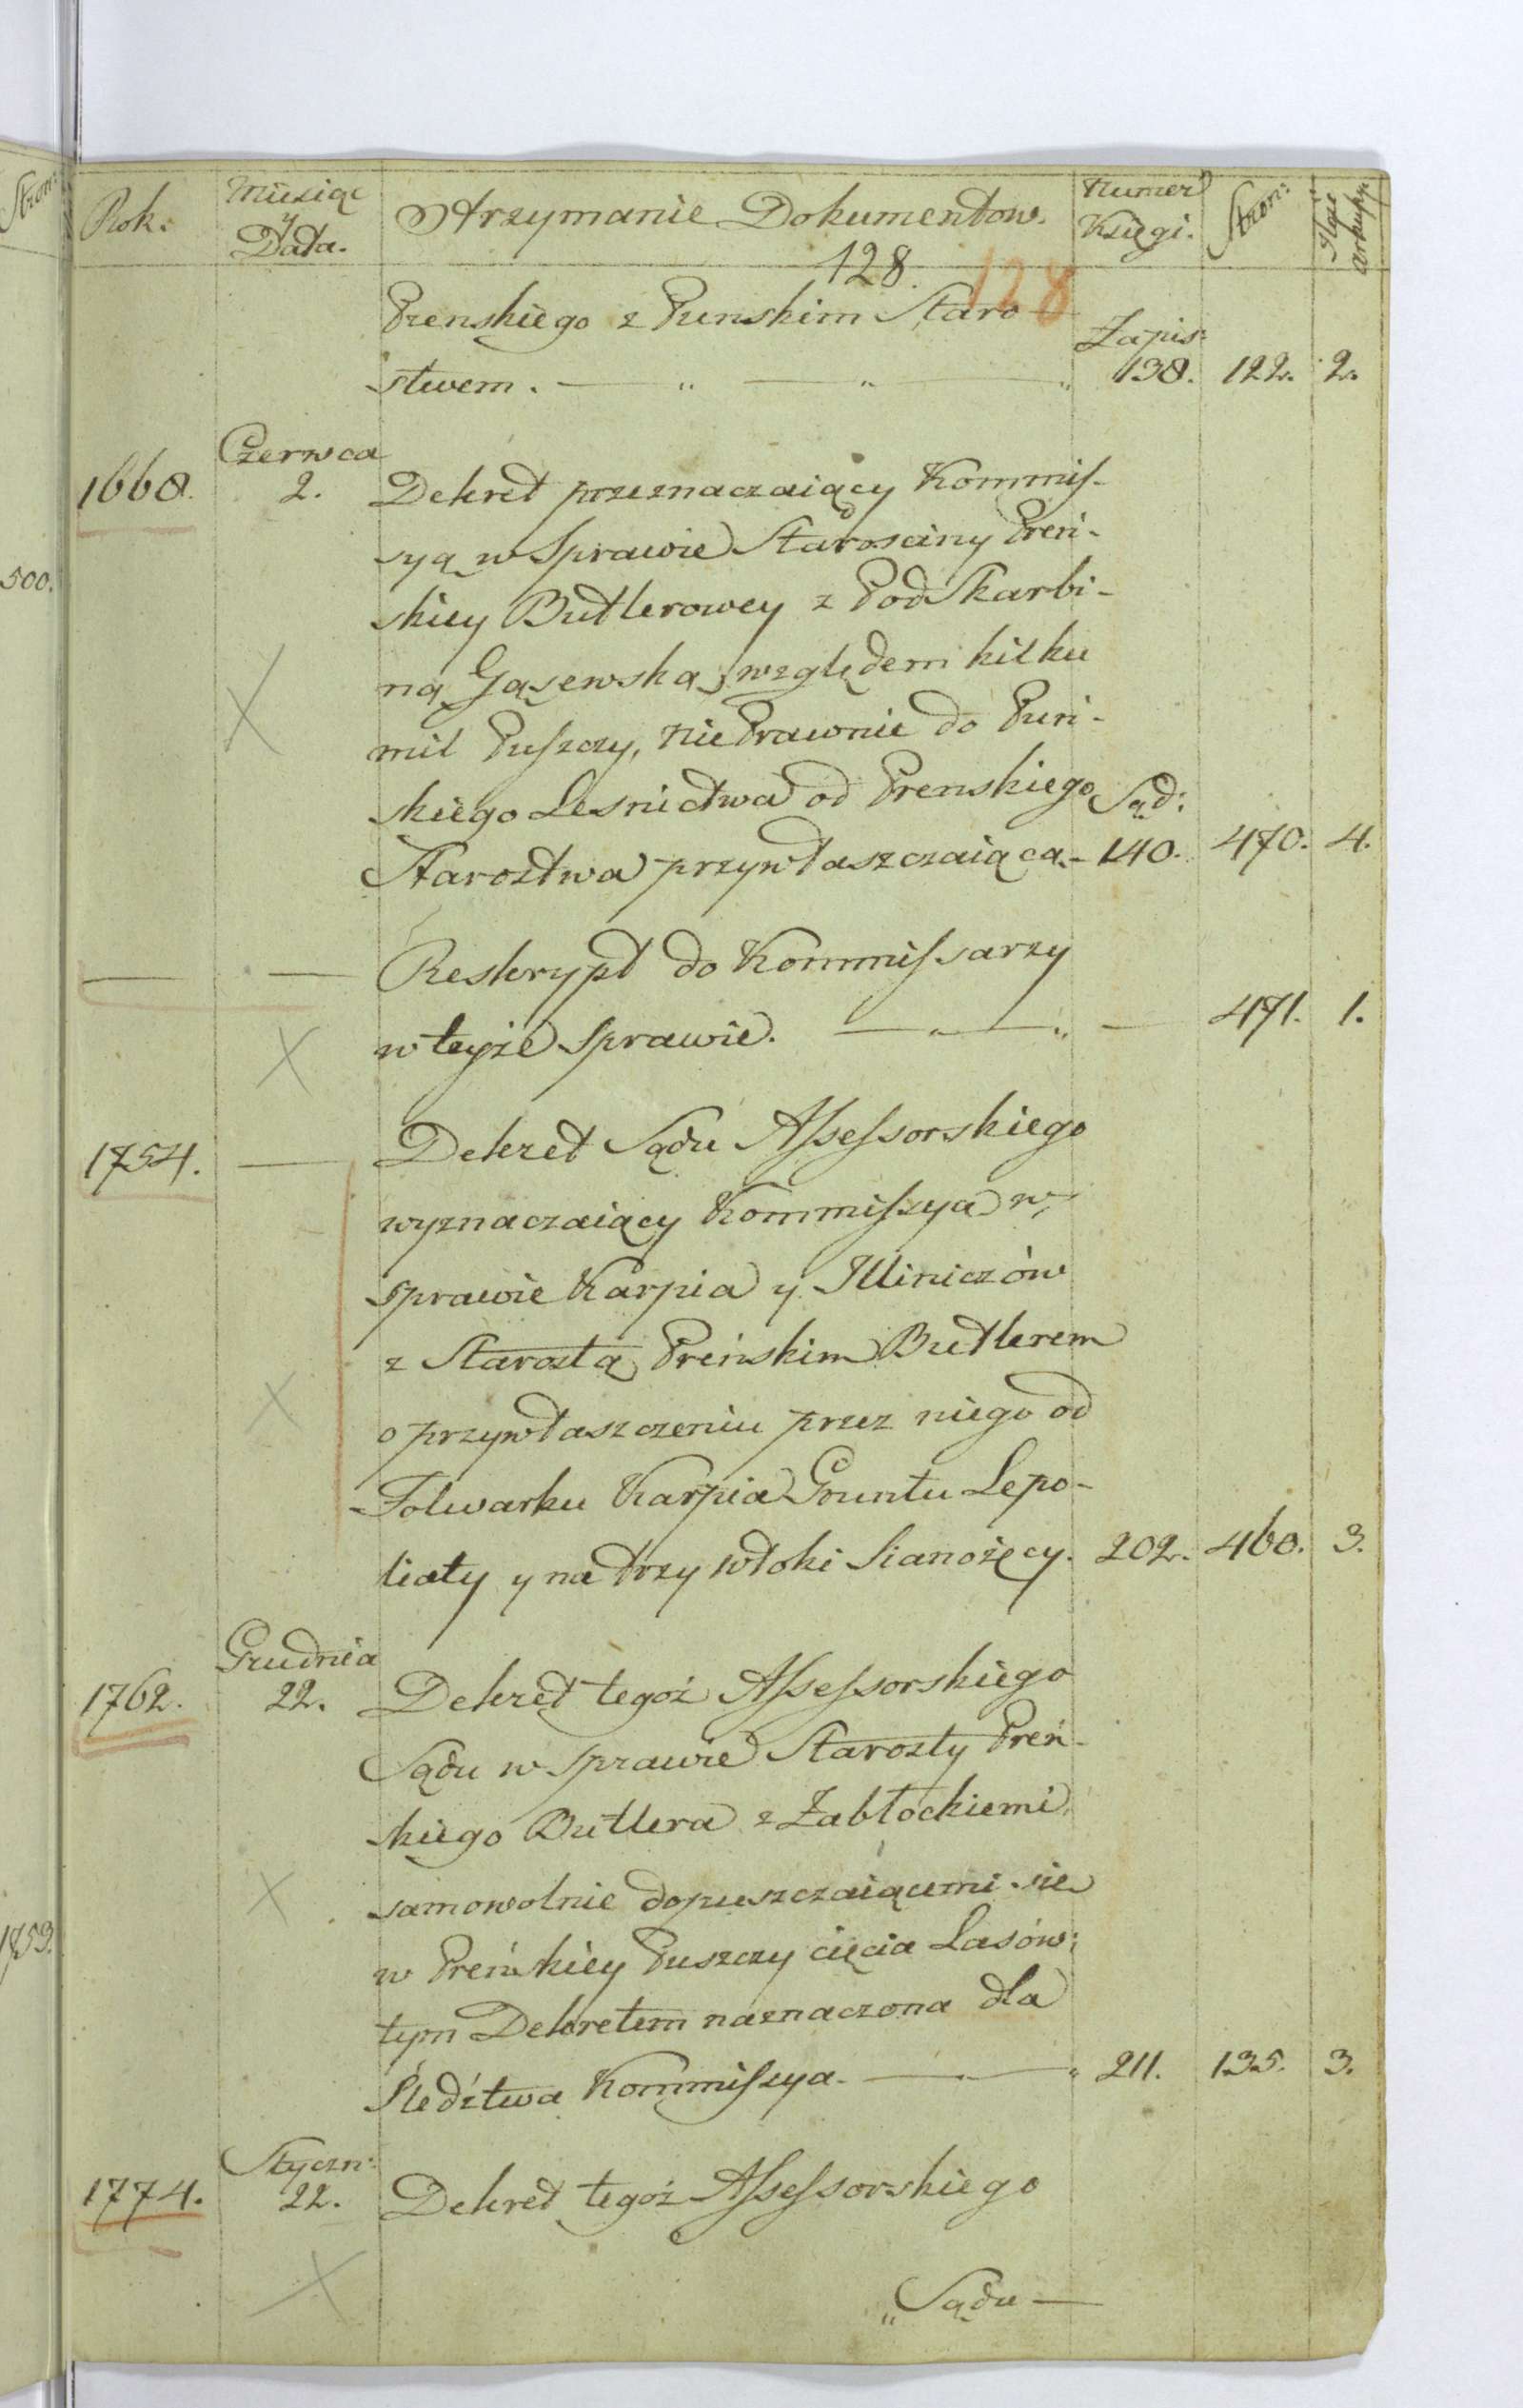 Stron:
Rok.
Miesiąc
y
Data.
Otrzymanie Dokumentow.
Numer
Księgi.
Stron:
Ilość
arkuszy.
128. 128
Prenskiego z Punskim Staro-
Zapis:
stwem. 138. 122. 2.
Czerwca
1668. 2. Dekret przeznaczaiący Kommis-
syą w Sprawie Starosciny Preń-
500.
skiey Butlerowey z PodSkarbi-
ną Gąsewską, względem kilku
mil Puszczy, nie Prawnie do Puń-
skiego Lesnictwa od Prenskiego Sąd:
Starostwa przywłaszczaiąca.- 140. 470. 4.
— — Reskrypt do Kommissarzy
w teyże Sprawie. — 471. 1.
1754. — Dekret Sądu Assessorskiego
wyznaczaiący Kommissya w
sprawie Karpia y Illiniczów
z Starostą Preńskim Butlerem
o przywłaszczeniu przez niego od
Folwarku Karpia Gruntu Lepo-
liaty y na trzy włoki Sianożęcy. 202. 460. 3.
Grudnia
1762. 22. Dekret tegoż Assessorskiego
Sądu w sprawie Starosty Preń-
skiego Butlera z Zabłockiemi,
samowolnie dopuszczaiącemi sie
w Preńskiey Puszczy cięcia Lasów;
1753.
tym Dekretem naznaczona dla
Śledztwa Kommissya. — 211. 135. 3.
Styczn:
1774. 22. Dekret tegoż Assessorskiego
„Sądu —